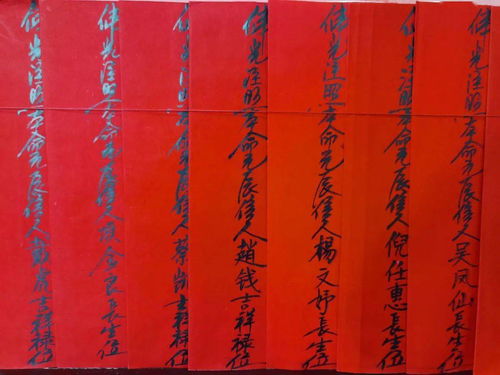 佛光注照本命元辰信人吴凤仙長生位
佛光注照本命元辰信人倪任惠長生位
佛光注照本命元辰信人楊文妤長生位
佛光注照本命元辰信人趙钱吉祥禄位
佛光注照本命元辰信人蔡吉祥禄位
佛光注照本命元辰信人金良長生位
佛光注照本命元辰信人戴吉祥禄位